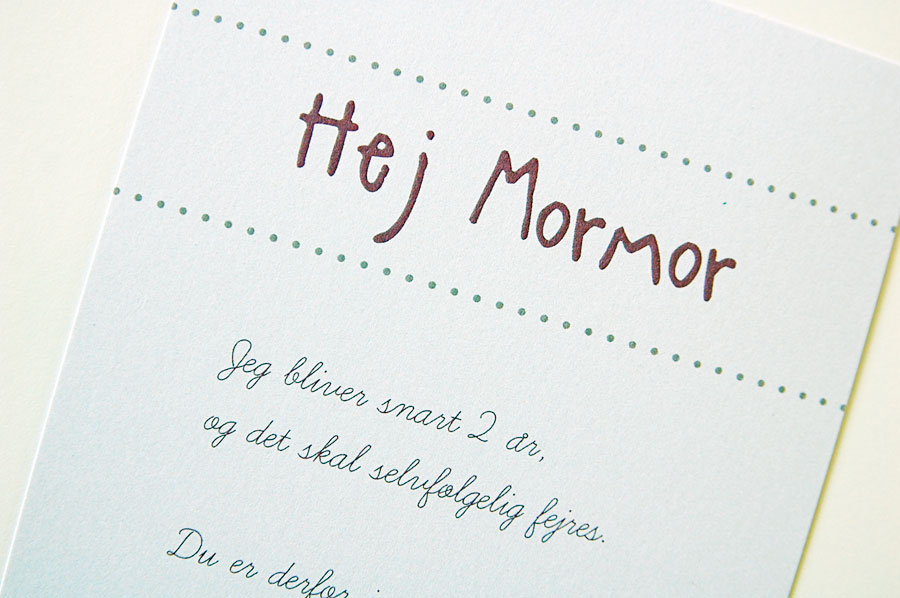 Hej Mormor
Jeg bliver snart 2 år,
og det skal selvfølgelig fejres.
Du er derfor